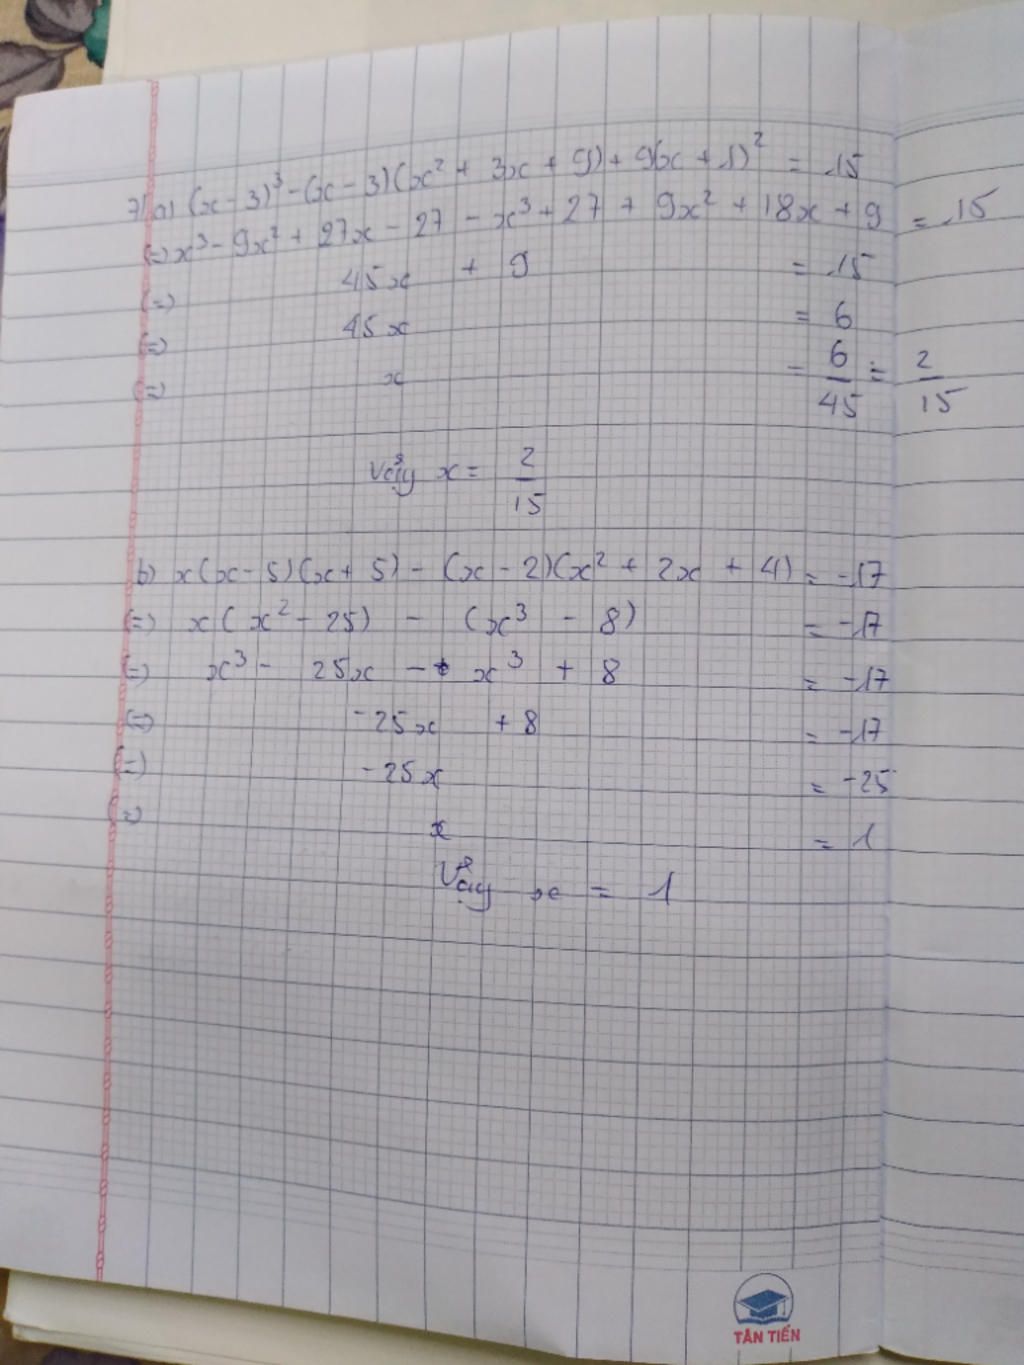 7) a) (x - 3)³ - (x - 3)(x² + 3x + 9) + 9(x + 1)² = 15
(=) x³ - 9x² + 27x - 27 - x³ + 27 + 9x² + 18x + 9 = 15
(=) 45x + 9 = 15
(=) 45x = 6
(=) x = 6/45 = 2/15
Vậy x = 2/15
b) x(x - 5)(x + 5) - (x - 2)(x² + 2x + 4) = -17
(=) x(x² - 25) - (x³ - 8) = -17
(=) x³ - 25x - x³ + 8 = -17
(=) -25x + 8 = -17
(=) -25x = -25
(=) x = 1
Vậy x = 1
TÂN TIẾN